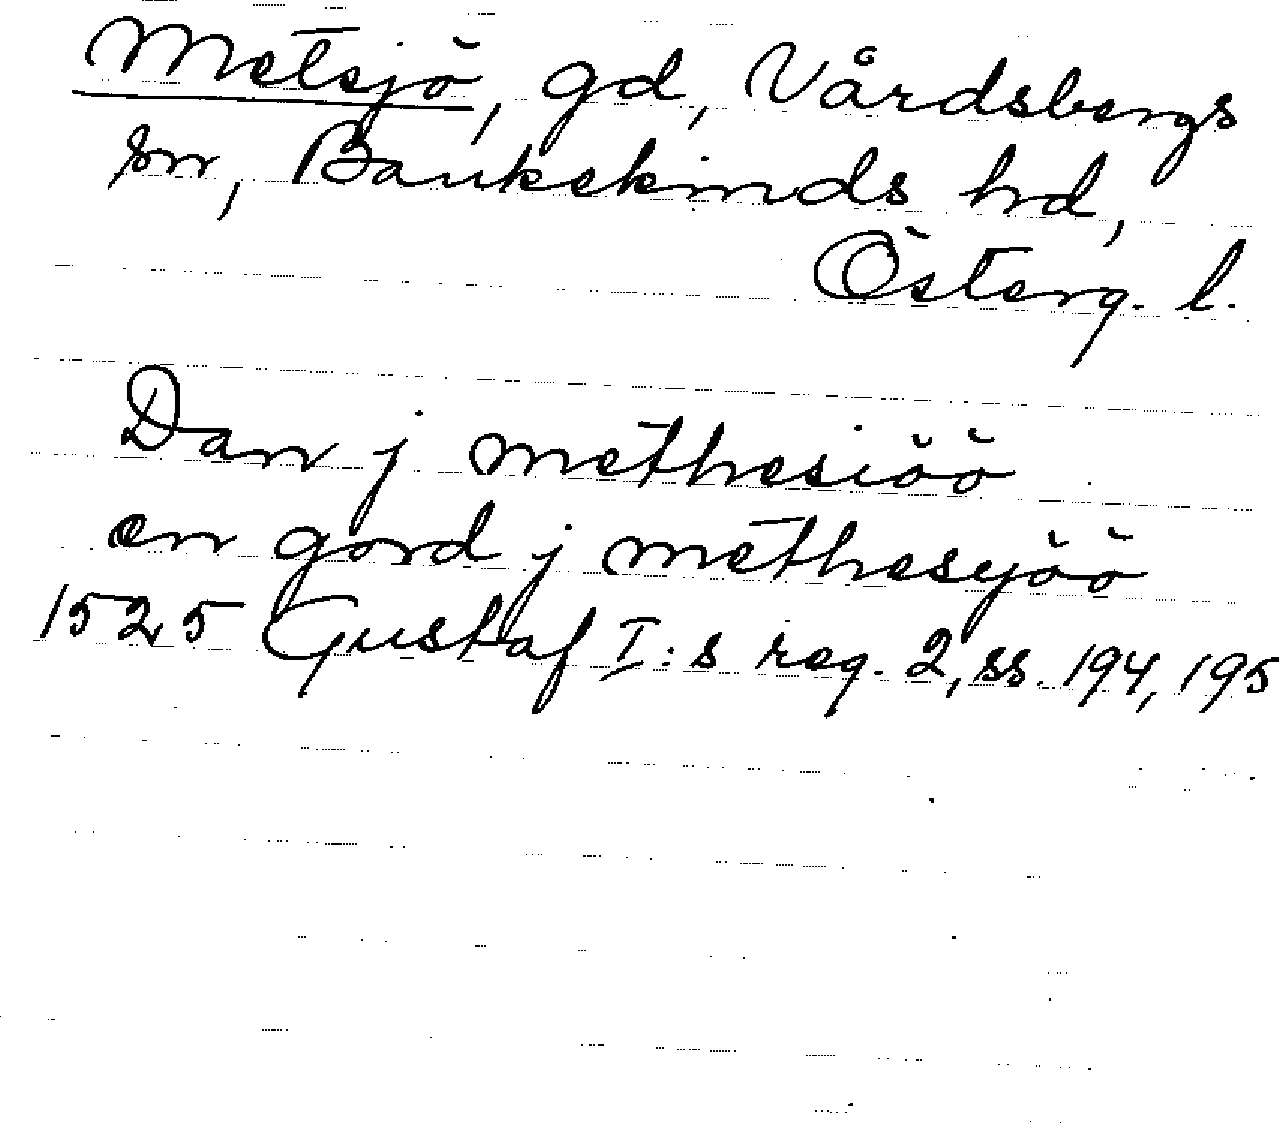 Metsjö, gd, Vårdsbergs
sn, Bankekinds hd,
Österg. l.
Dan j methesiöö
en gord j methesyöö
1525 Gustaf I:s reg. 2, ss. 194, 195